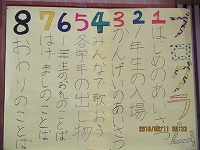 プログラム
1 はじめのあいさつ
2 1年生の入場
3 かんげいのあいさつ
4 みんなで歌おう
5 各学年の出し物
6 一年生のお礼のことば
7 はげましのことば
8 おわりのことば